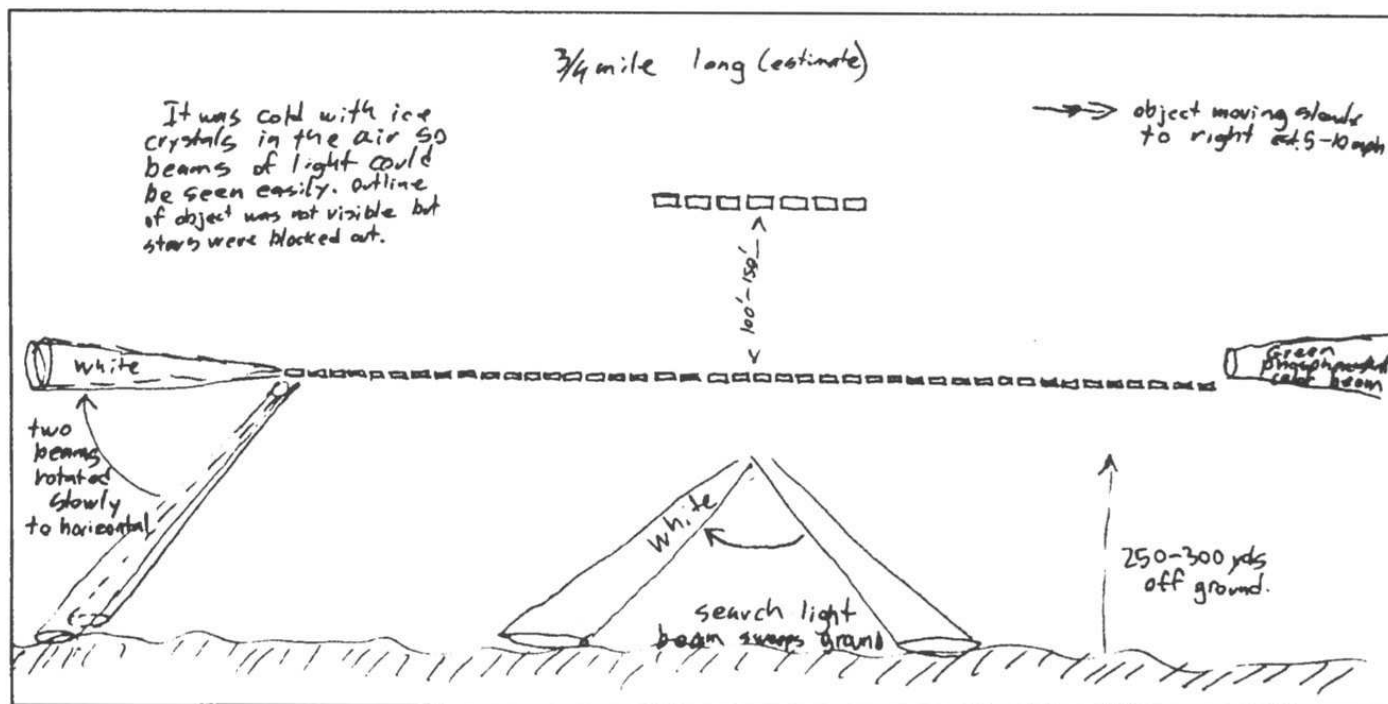 3/4 mile long (estimate)
It was cold with ice
crystals in the air so
beams of light could
be seen easily. Outline
of object was not visible but
stars were blocked out.
object moving slowly
to right est. 5-10 mph
100'-150'
white
Green
color beam
two
beams
rotated
slowly
to horizontal
white
search light
beam sweeps ground
250-300 yds
off ground.